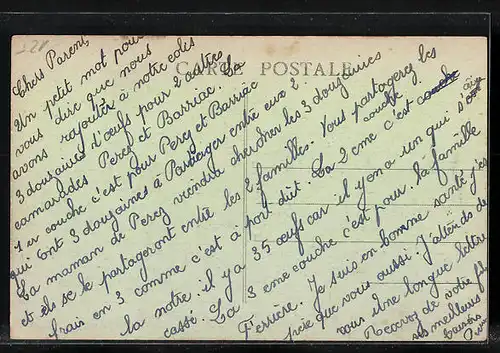 CARTE POSTALE
Chers Parents,
Un petit mot pour
vous dire que nous
avons rajouté à notre colis
3 douzaines d'œufs pour 2 autres
camarades Percy et Barriac. La
1er couche c'est pour Percy et Barriac
qui ont 3 douzaines à Partager entre eux 2.
La maman de Percy viendra chercher les 3 douzaines
et ils se le partageront entre les 2 familles. Vous partagerez les
frais en 3 comme c'est à port dût. La 2 eme c'est couche
la notre. il y a 35 œufs car il y en a un qui s'est
cassé. La 3 eme couche c'est pour la famille
Ferrière. Je suis en bonne santé j'es
père que vous aussi. J'attends de
vous une longue lettre
Recevez de votre fils
ses meilleurs
baisers